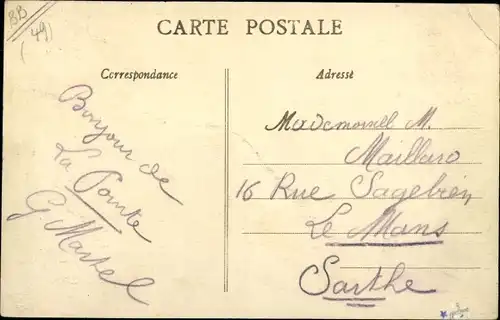 BB
(49)
CARTE POSTALE
Correspondance
Adresse
Bonjour de
La Pointe
G Martel
Mademoisel M.
Maillard
16 Rue Sagebien
Le Mans
Sarthe